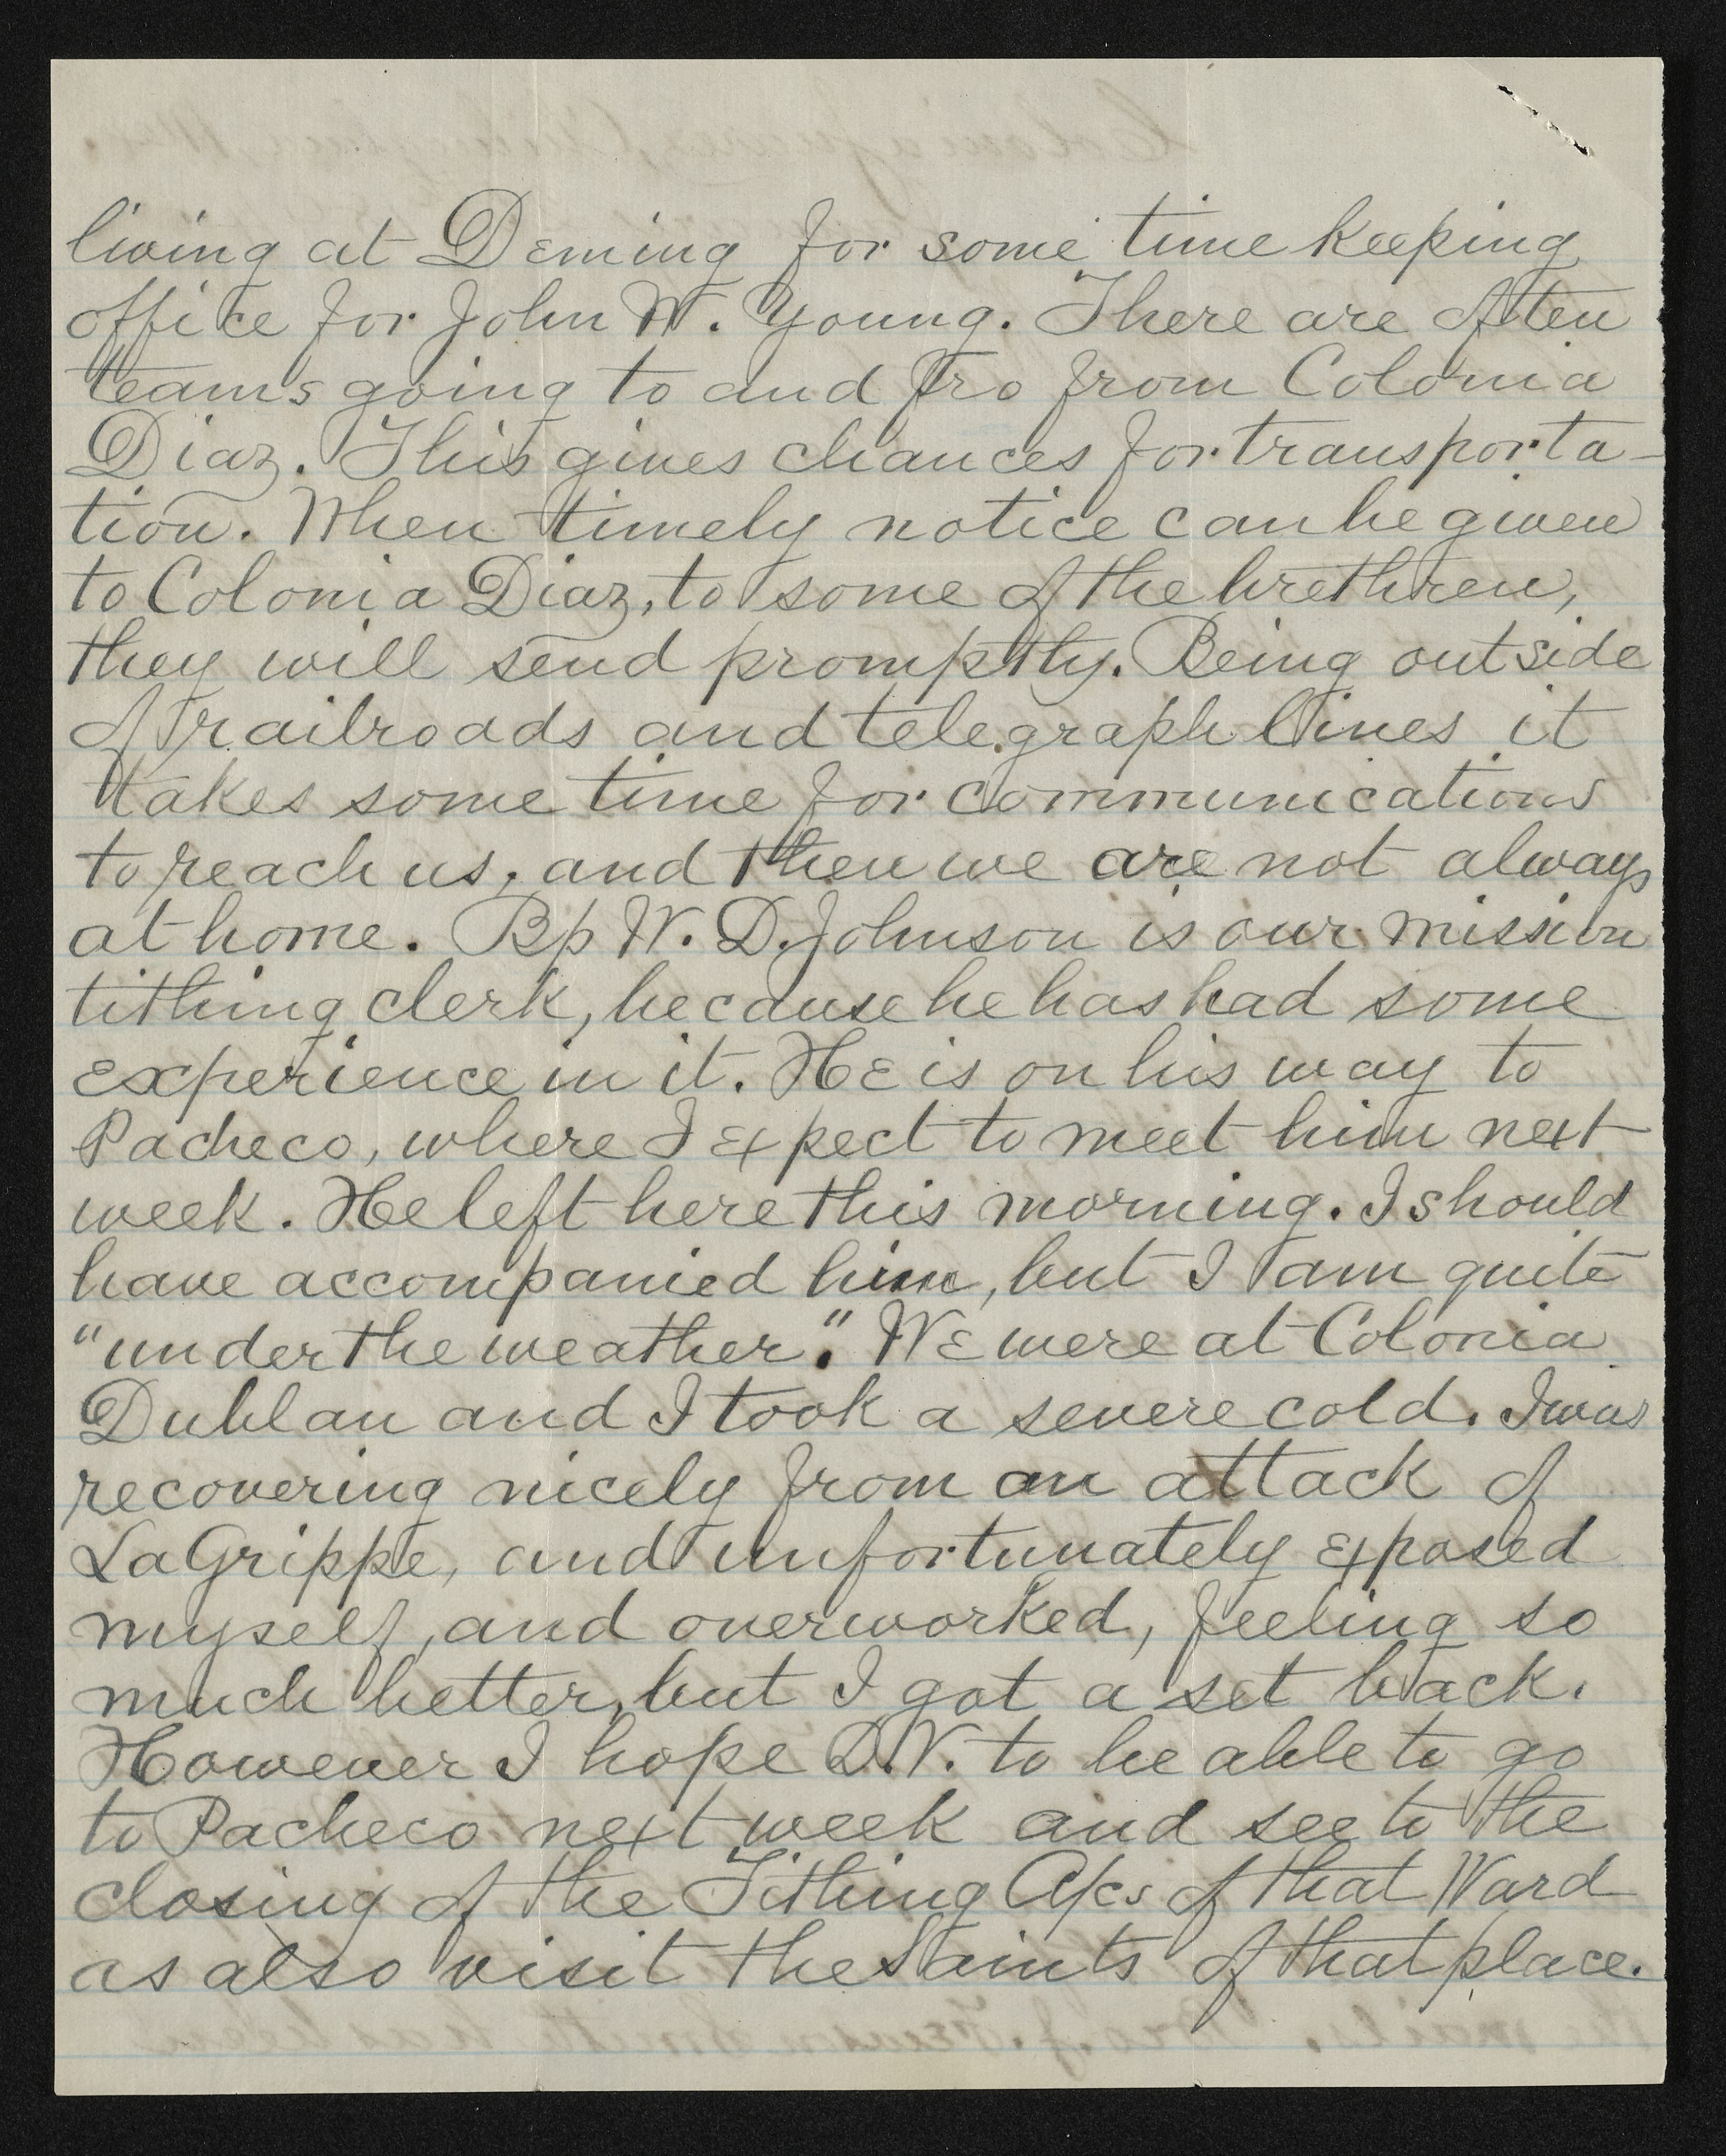 living at Deming for some time keeping
office for John W. Young. There are often
teams going to and fro from Colonia
Diaz. This gives chances for transporta-
tion. When timely notice can be given
to Colonia Diaz, to some of the brethren,
they will send promptly. Being outside
of railroads and telegraph lines it
takes some time for communications
to reach us, and then we are not always
at home. Bp W. D. Johnson is our mission
tithing clerk, because he has had some
experience in it. He is on his way to
Pacheco, where I expect to meet him next
week. He left here this morning. I should
have accompanied him, but I am quite
"under the weather." We were at Colonia
Dublan and I took a severe cold. I was
recovering nicely from an attack of
LaGrippe, and unfortunately exposed
myself, and overworked, feeling so
much better, but I got a set back.
However I hope D.V. to be able to go
to Pacheco next week and see to the
closing of the Tithing A/cs of that Ward
as also visit the Saints of that place.